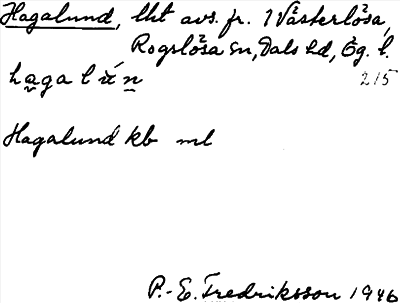 Hagalund, lht avs. fr. 1 Västerlösa,
Rogslösa sn, Dals hd, Ög. l.
hagalún 215
Hagalund kb ml
P.-E. Fredriksson 1946